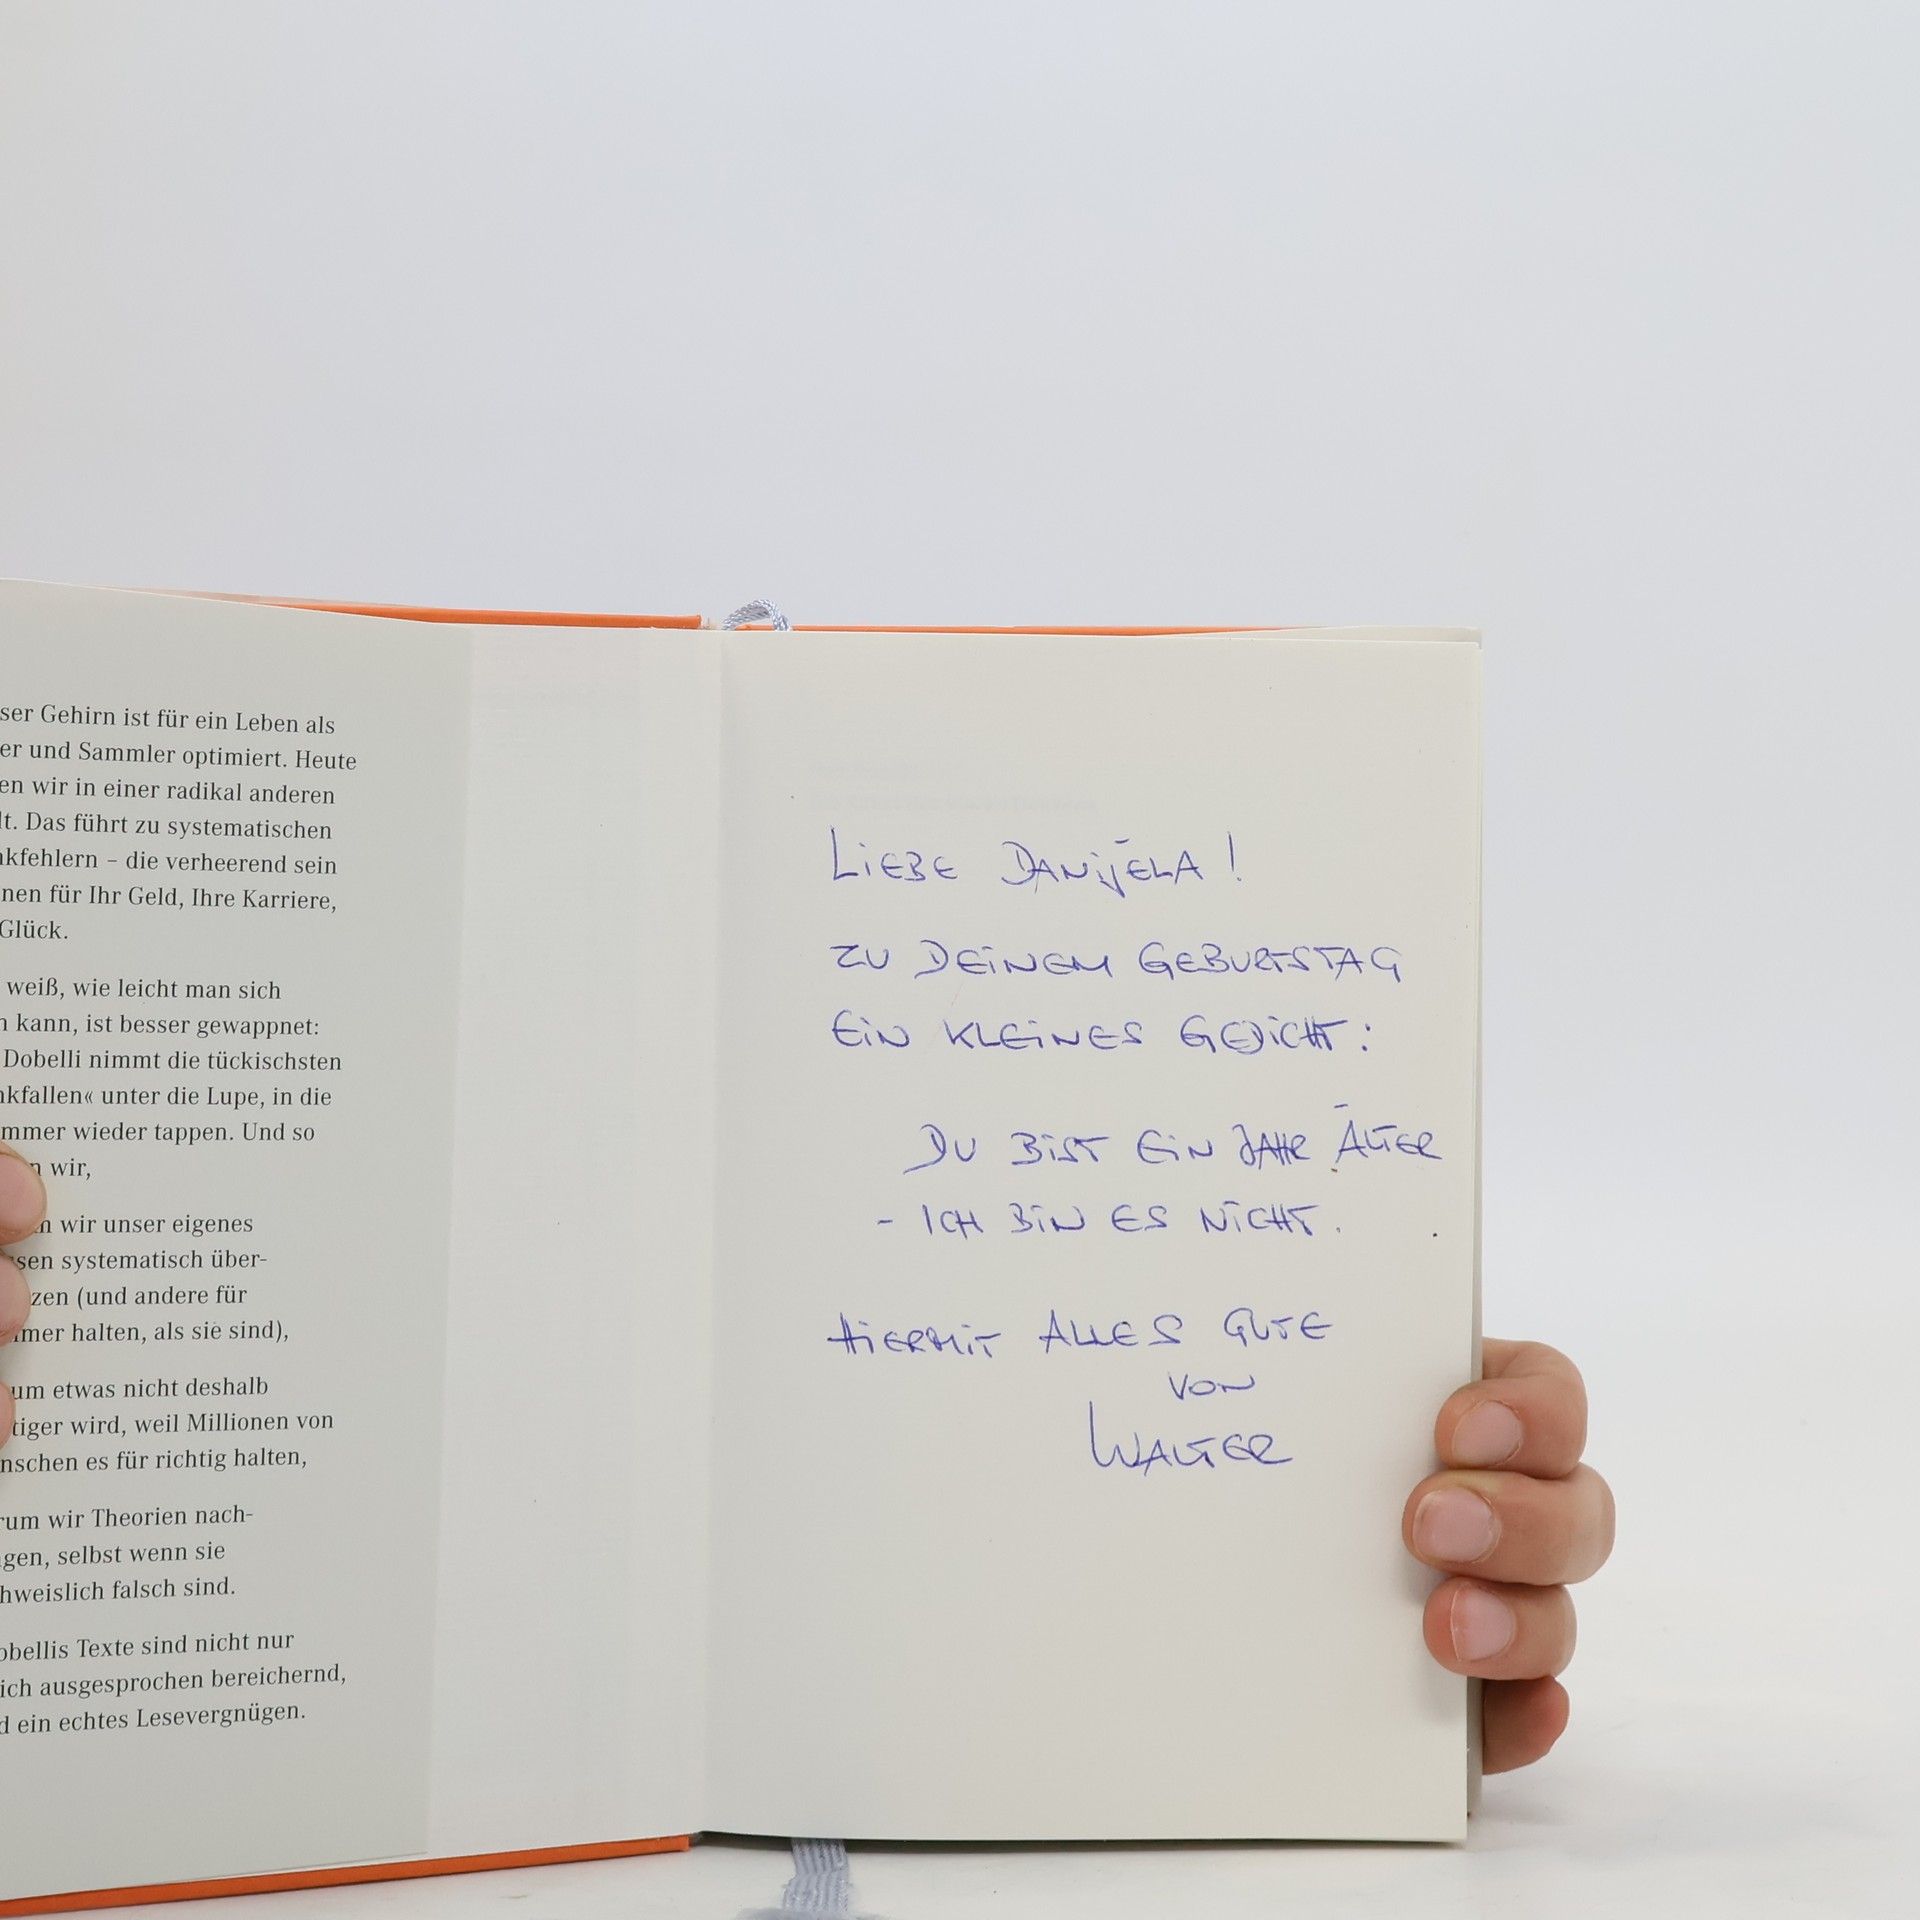 ser Gehirn ist für ein Leben als
er und Sammler optimiert. Heute
en wir in einer radikal anderen
lt. Das führt zu systematischen
nkfehlern – die verheerend sein
nen für Ihr Geld, Ihre Karriere,
Glück.
weiß, wie leicht man sich
n kann, ist besser gewappnet:
Dobelli nimmt die tückischsten
nkfallen« unter die Lupe, in die
mmer wieder tappen. Und so
n wir,
n wir unser eigenes
ssen systematisch über-
zen (und andere für
mer halten, als sie sind),
um etwas nicht deshalb
tiger wird, weil Millionen von
nschen es für richtig halten,
rum wir Theorien nach-
gen, selbst wenn sie
hweislich falsch sind.
obellis Texte sind nicht nur
ich ausgesprochen bereichernd,
d ein echtes Lesevergnügen.
LIEBE DANIJELA!
ZU DEINEM GEBURTSTAG
EIN KLEINES GEDICHT:
DU BIST EIN JAHR ÄLTER
- ICH BIN ES NICHT.
HIERMIT ALLES GUTE
VON
WALTER